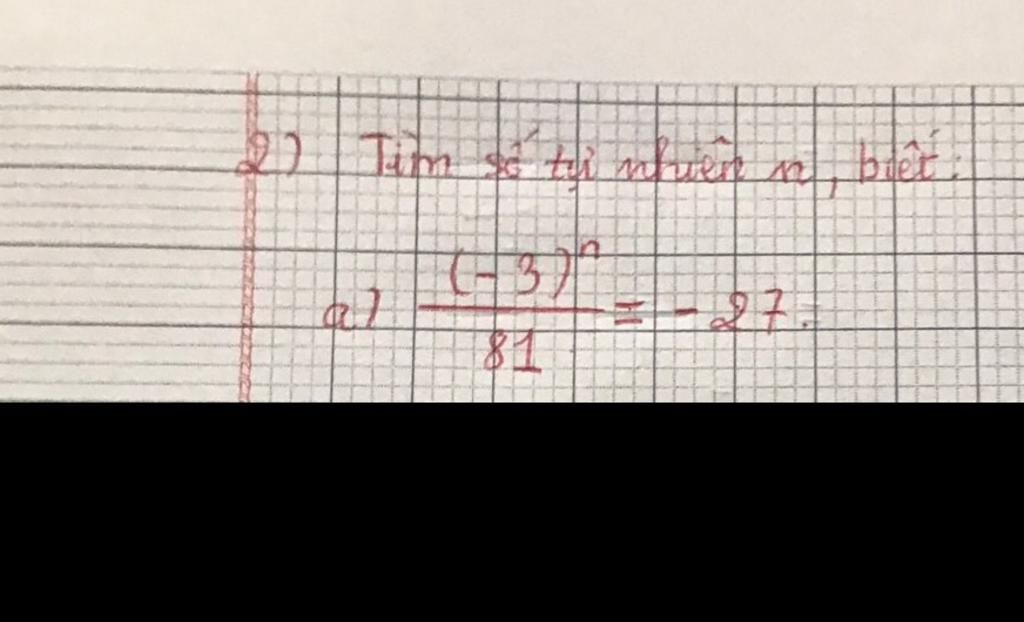 2) Tìm số tự nhiên n, biết:
a) (-3)^n / 81 = -27.